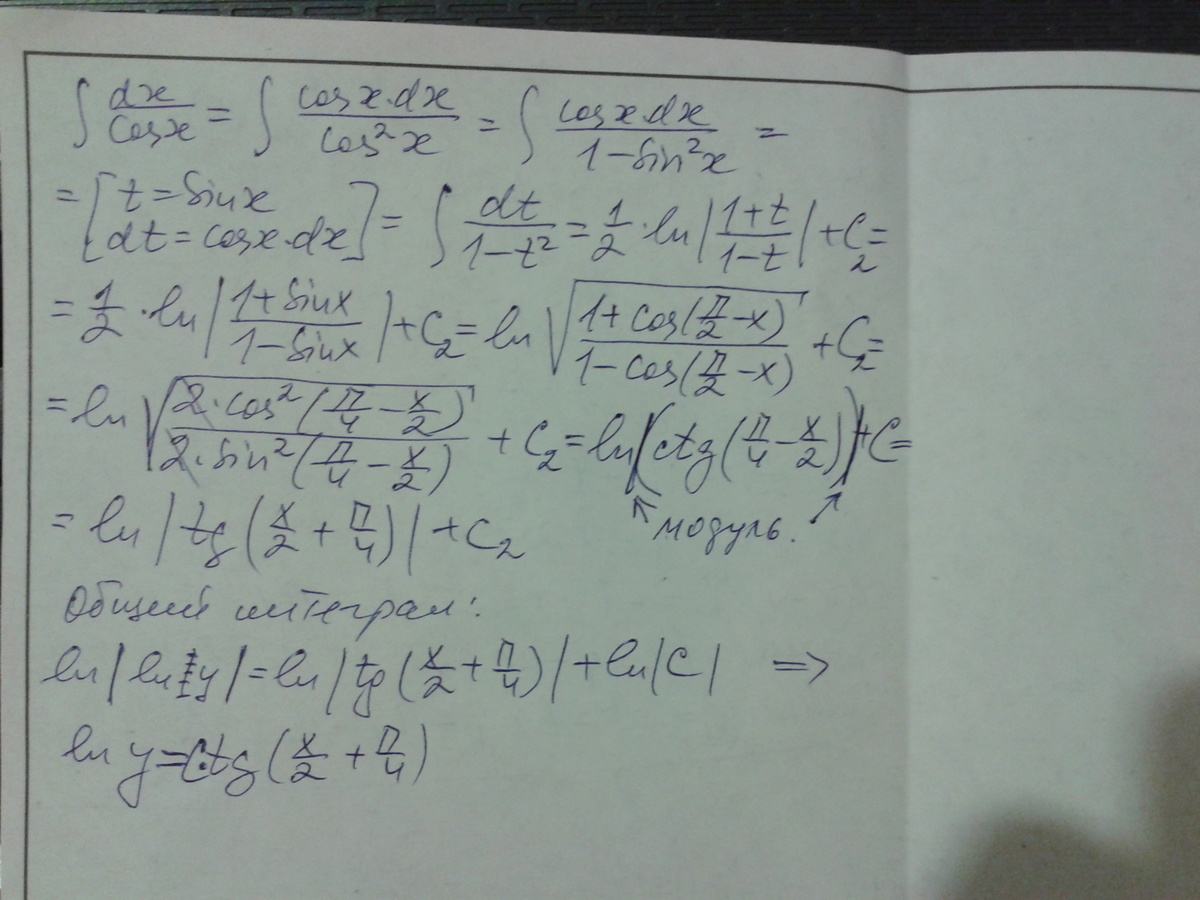 ∫ dx/cosx = ∫ cosx·dx/cos²x = ∫ cosx·dx/1-sin²x =
= [t=sinx dt=cosx·dx] = ∫ dt/1-t² = 1/2·ln|1+t/1-t| + C₂ =
= 1/2·ln|1+sinx/1-sinx| + C₂ = ln√(1+cos(π/2-x)/1-cos(π/2-x)) + C₂ =
= ln√(2·cos²(π/4-x/2)/2·sin²(π/4-x/2)) + C₂ = ln|ctg(π/4-x/2)| + C =
модуль.
= ln|tg(x/2+π/4)| + C₂
Общий интеграл:
ln|ln y| = ln|tg(x/2+π/4)| + ln|C| ⇒
ln y = C·tg(x/2+π/4)